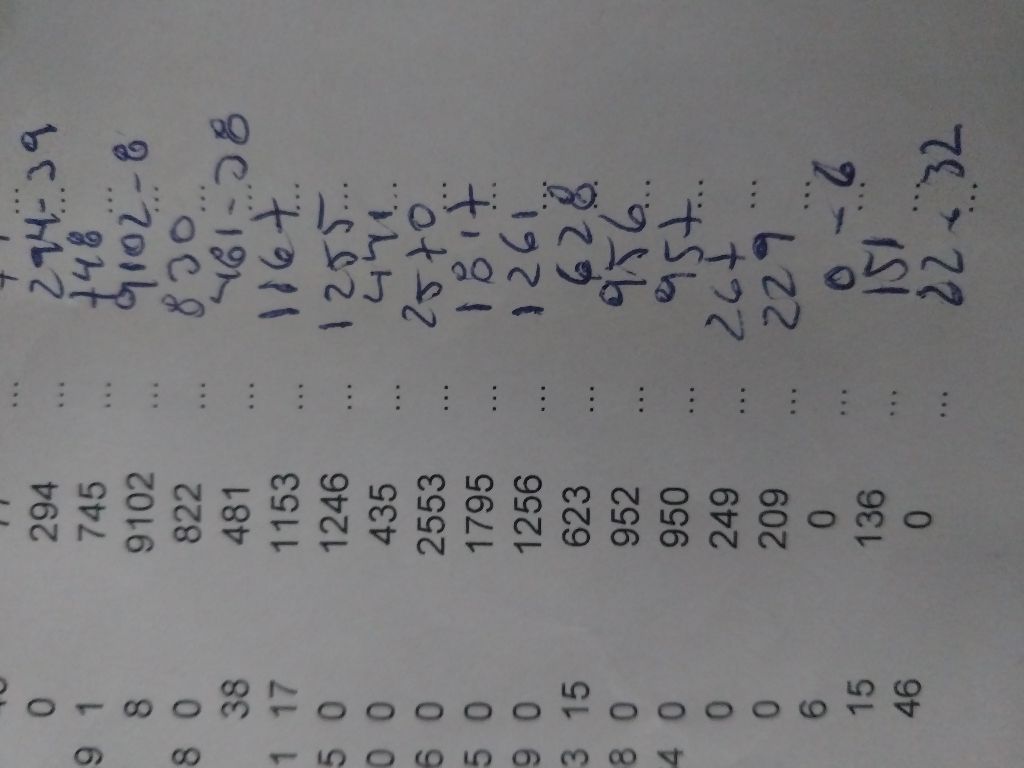 0 294 ... 294-39 ...
9 1 745 ... 748
8 9102 ... 9102-8 ...
8 0 822 ... 830
38 481 ... 481-38 ...
1 17 1153 ... 1167 ...
5 0 1246 ... 1255 ...
0 0 435 ... 441 ...
6 0 2553 ... 2570 ...
5 0 1795 ... 1817 ...
9 0 1256 ... 1261 ...
3 15 623 ... 628 ...
8 0 952 ... 956 ...
4 0 950 ... 957 ...
0 249 ... 267 ...
0 209 ... 229 ...
6 0 ... 0-6 ...
15 136 ... 151 ...
46 0 ...